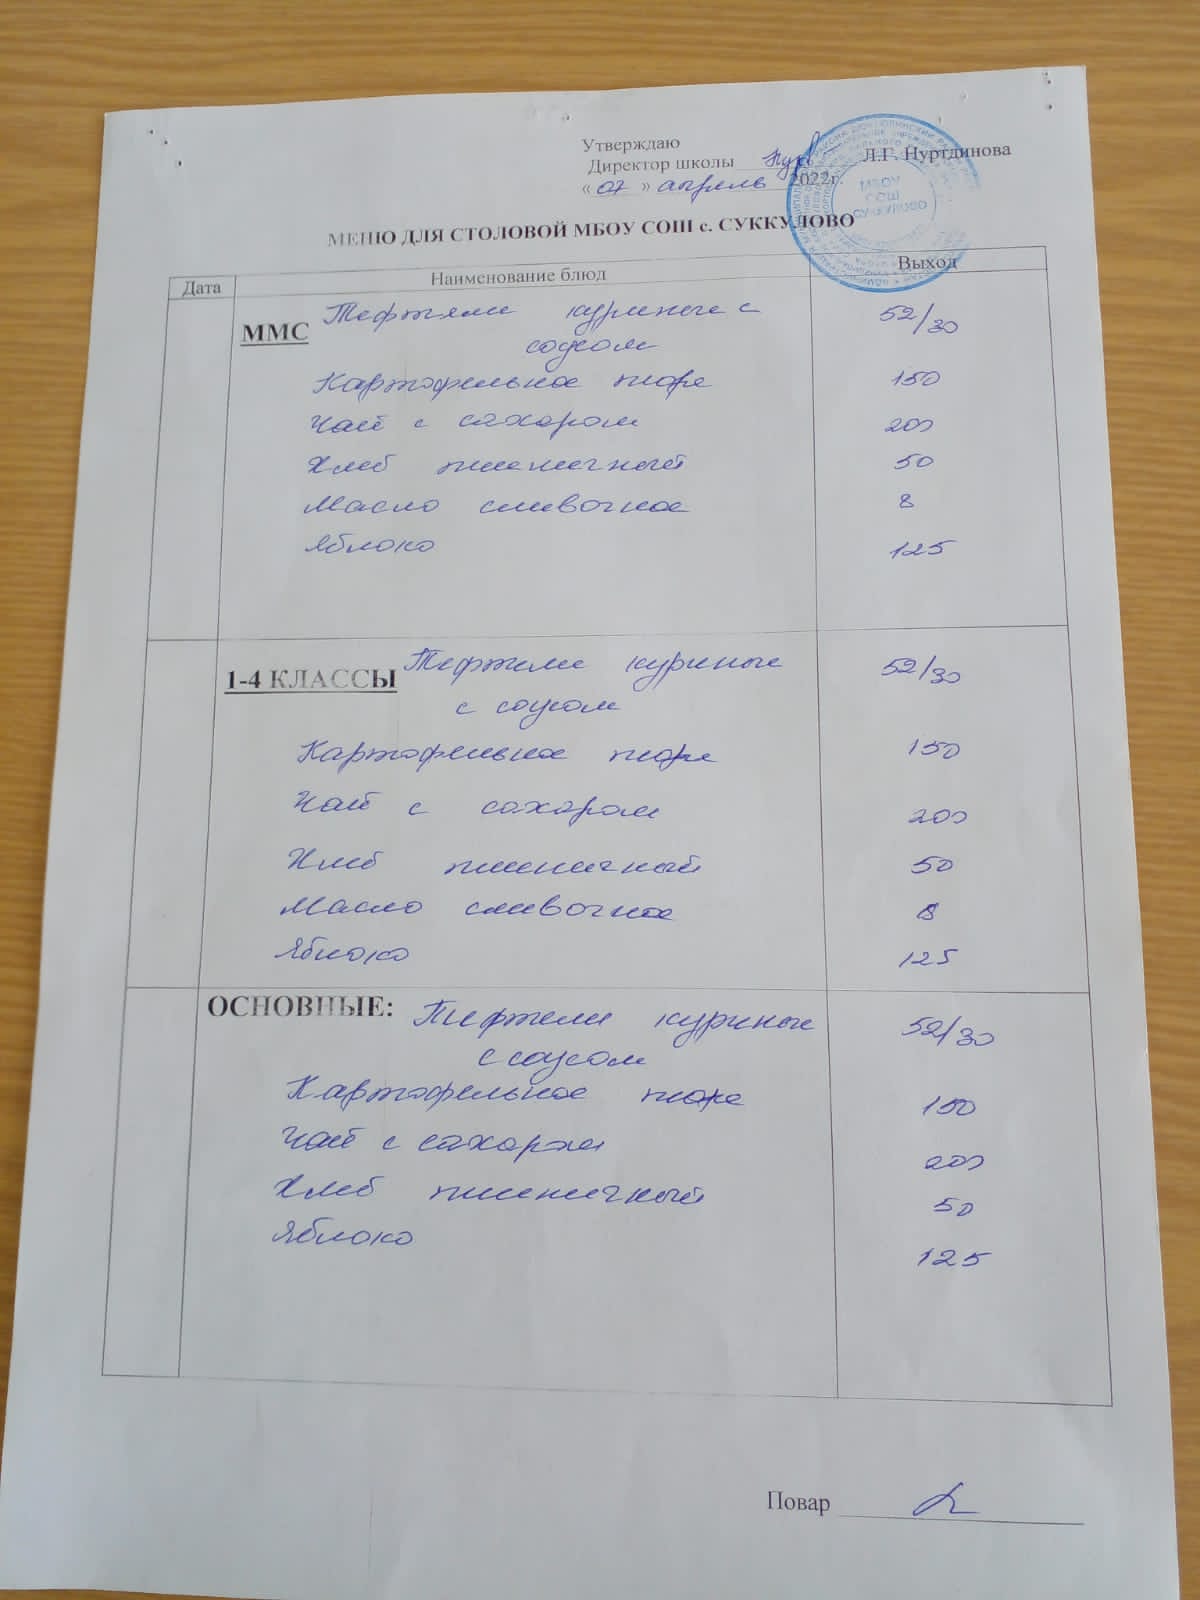 Утверждаю
Директор школы Л.Г. Нуртдинова
« 07 » апрель 2022г.
МБОУ
СОШ
СУККУЛОВО
МЕНЮ ДЛЯ СТОЛОВОЙ МБОУ СОШ с. СУККУЛОВО
Дата Наименование блюд Выход
ММС Тефтели куриные с 52/30
соусом
Картофельное пюре 150
Чай с сахаром 200
Хлеб пшеничный 50
Масло сливочное 8
Яблоко 125
1-4 КЛАССЫ Тефтели куриные 52/30
с соусом
Картофельное пюре 150
Чай с сахаром 200
Хлеб пшеничный 50
Масло сливочное 8
Яблоко 125
ОСНОВНЫЕ: Тефтели куриные 52/30
с соусом
Картофельное пюре 150
Чай с сахаром 200
Хлеб пшеничный 50
Яблоко 125
Повар